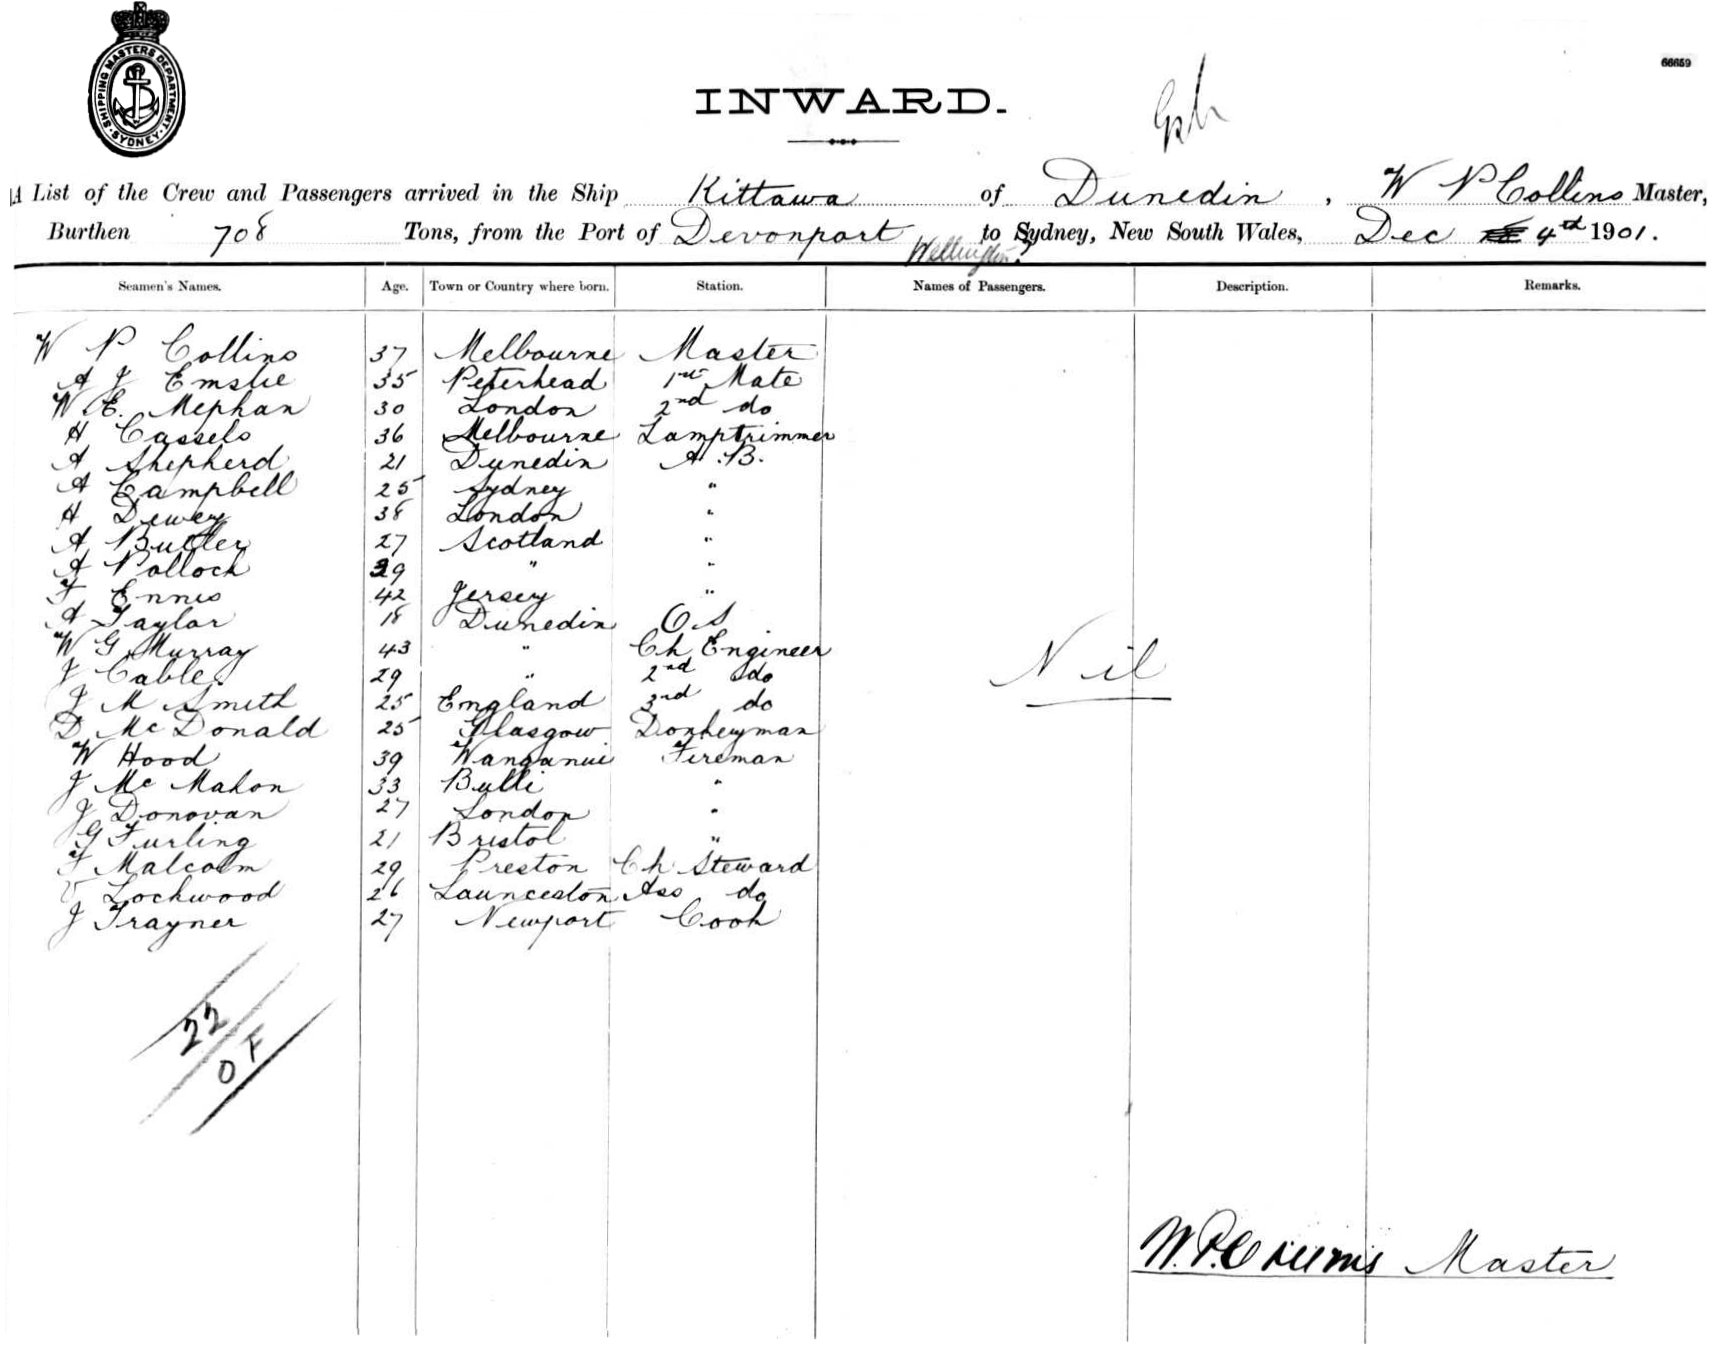 SHIPPING MASTERS DEPARTMENT · SYDNEY ·
66659
INWARD.
A List of the Crew and Passengers arrived in the Ship Kittawa of Dunedin, W P Collins Master,
Burthen 708 Tons, from the Port of Devonport to Sydney, New South Wales, Dec 4th 1901.
Wellington
Seamen's Names. Age. Town or Country where born. Station. Names of Passengers. Description. Remarks.
W P Collins 37 Melbourne Master
A J Emslie 35 Peterhead 1st Mate
W E. Mephan 30 London 2nd do
H Cassels 36 Melbourne Lamptrimmer
A Shepherd 21 Dunedin A.B.
A Campbell 25 Sydney "
H Dewey 38 London "
A Butler 27 Scotland "
A Pollock 39 " "
F Ennis 42 Jersey "
A Taylor 18 Dunedin O S
W G Murray 43 " Ch Engineer
J Cable 29 " 2nd do
J M Smith 25 England 3rd do
D McDonald 25 Glasgow Donkeyman
W Hood 39 Wanganui Fireman
J McMahon 33 Bulli "
J Donovan 27 London "
G Furling 21 Bristol "
F Malcolm 29 Preston Ch Steward
Lockwood 26 Launceston Ass do
J Trayner 27 Newport Cook
Nil
22
O F
W.P. Collins Master